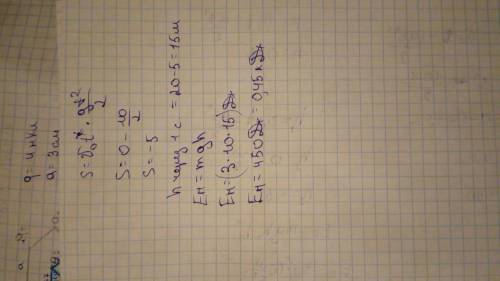 q = 4 нкл
a = 3 см
S = V₀t + gt²/2
S = 0 - 10/2
S = -5
h через 1 с = 20-5 = 15м
Eп = mgh
Eп = (3·10·15) Дж
Eп = 450 Дж = 0,45кДж